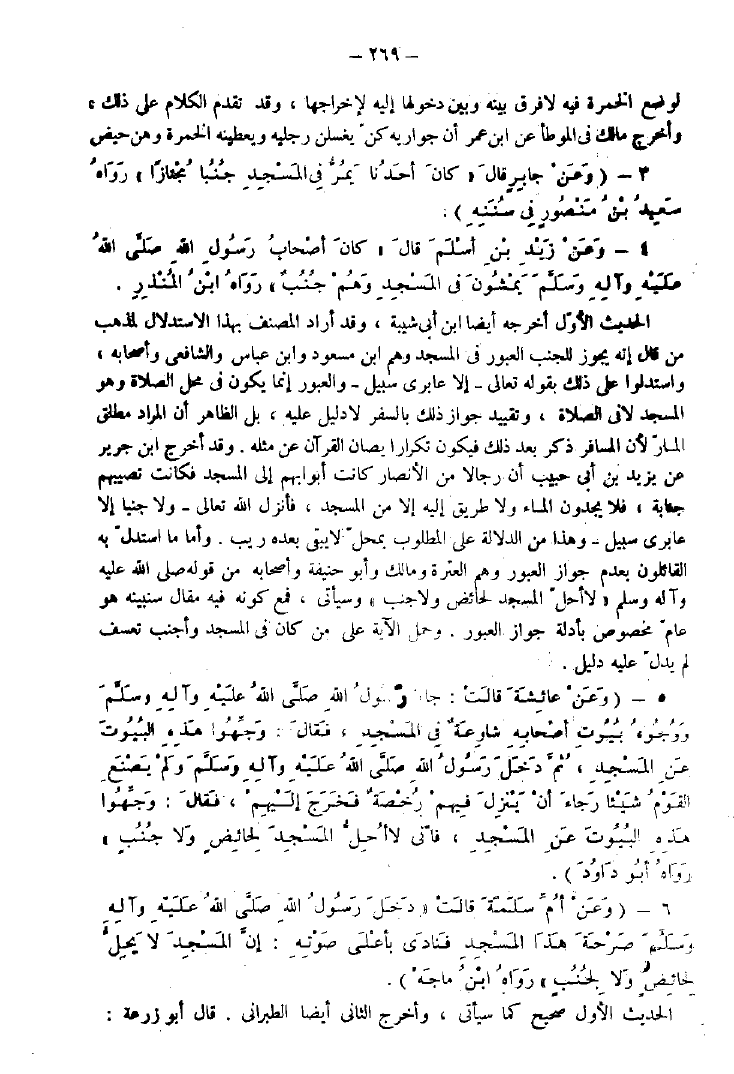 – ٢٦٩ –
لوضع الخمرة فيه لافرق بينه وبين دخولها إليه لإخراجها ، وقد تقدم الكلام على ذلك ،
وأخرج مالك فى الموطأ عن ابن عمر أن جواريه كنّ يغسلن رجليه ويعطينه الخمرة وهن حيض
٣ – ( وَعَنْ جابِرٍ قالَ « كانَ أحَدُنا يَمُرُّ فِى المَسْجِدِ جُنُبا مُجْتازًا » رَوَاهُ
سَعِيدُ بْنُ مَنْصُورٍ فِى سُنَنِهِ ) :
٤ – وَعَنْ زَيْدِ بْنِ أسْلَمَ قالَ « كانَ أصْحابُ رَسُولِ اللهِ صَلَّى اللهُ
عَلَيْهِ وآلِهِ وَسَلَّمَ يَمْشُونَ فى المَسْجِدِ وَهُمْ جُنُبٌ » رَوَاهُ ابْنُ المُنْذِرِ .
الحديث الأوّل أخرجه أيضا ابن أبى شيبة ، وقد أراد المصنف بهذا الاستدلال لمذهب
من قال إنه يجوز للجنب العبور فى المسجد وهم ابن مسعود وابن عباس والشافعى وأصحابه ،
واستدلوا على ذلك بقوله تعالى ـ إلا عابرى سبيل ـ والعبور إنما يكون فى محل الصلاة وهو
المسجد لافى الصلاة ، وتقييد جواز ذلك بالسفر لادليل عليه ، بل الظاهر أن المراد مطلق
المارّ لأن المسافر ذكر بعد ذلك فيكون تكرارا يصان القرآن عن مثله . وقد أخرج ابن جرير
عن يزيد بن أبى حبيب أن رجالا من الأنصار كانت أبوابهم إلى المسجد فكانت تصيبهم
جنابة ، فلا يجدون الماء ولا طريق إليه إلا من المسجد ، فأنزل الله تعالى ـ ولا جنبا إلا
عابرى سبيل ـ وهذا من الدلالة على المطلوب بمحلّ لايبقى بعده ريب . وأما ما استدلّ به
القائلون بعدم جواز العبور وهم العترة ومالك وأبو حنيفة وأصحابه من قوله صلى الله عليه
وآله وسلم « لاأحلّ المسجد لحائض ولاجنب » وسيأتى ، فمع كونه فيه مقال سنبينه هو
عامّ مخصوص بأدلة جواز العبور . وحمل الآية على من كان فى المسجد وأجنب تعسف
لم يدلّ عليه دليل .
٥ – ( وَعَنْ عائِشَةَ قالَتْ : جاءَ رَسُولُ اللهِ صَلَّى اللهُ عَلَيْهِ وآلِهِ وسَلَّمَ
وَوُجُوهُ بُيُوتِ أصْحابِهِ شارِعَةٌ فِى المَسْجِدِ ، فَقالَ : وَجِّهُوا هَذِهِ البُيُوتَ
عَنِ المَسْجِدِ ، ثُمَّ دَخَلَ رَسُولُ اللهِ صَلَّى اللهُ عَلَيْهِ وآلِهِ وَسَلَّمَ وَلَمْ يَصْنَعِ
القَوْمُ شَيْئا رَجاءَ أنْ يَنْزِلَ فِيهِمْ رُخْصَةٌ فَخَرَجَ إلَيْهِمْ ، فَقالَ : وَجِّهُوا
هَذِهِ البُيُوتَ عَنِ المَسْجِدِ ، فإنّى لاأُحِلُّ المَسْجِدَ لِحائِضٍ وَلا جُنُبٍ »
رَوَاهُ أبُو دَاوُدَ ) .
٦ – ( وَعَنْ أُمّ سَلَمَةَ قالَتْ « دَخَلَ رَسُولُ اللهِ صَلَّى اللهُ عَلَيْهِ وآلِهِ
وَسَلَّمَ صَرْحَةَ هَذَا المَسْجِدِ فَنادَى بأعْلَى صَوْتِهِ : إنَّ المَسْجِدَ لا يَحِلُّ
لِحائِضٍ وَلا لِجُنُبٍ » رَوَاهُ ابْنُ ماجَهْ ) .
الحديث الأول صحيح كما سيأتى ، وأخرج الثانى أيضا الطبرانى . قال أبو زرعة :